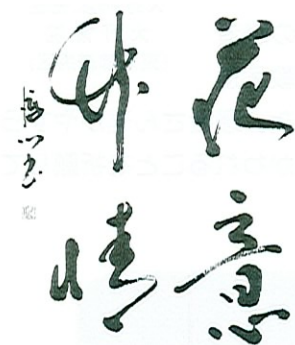 花意
竹情